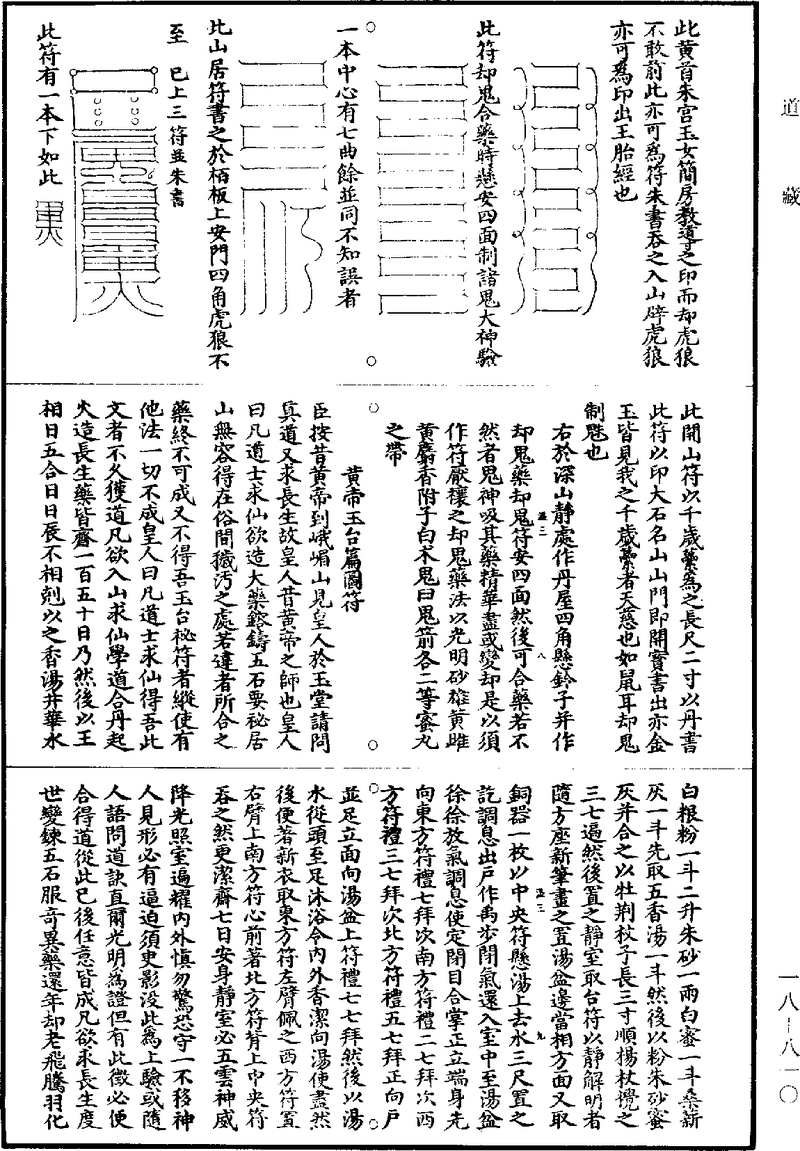 道藏
一八—八一〇
此黃首朱宮玉女簡房教導之印而却虎狼
不敢前此亦可為符朱書吞之入山辟虎狼
亦可為印出玉胎經也
此符却鬼合藥時懸安四面制諸鬼大神驗
一本中心有七曲餘並同不知誤者
此山居符書之於栢板上安門四角虎狼不
至 已上三符並朱書
此符有一本下如此
此開山符以千歲虆為之長尺二寸以丹書
此符以印大石名山山門即開寶書出亦金
玉皆見我之千歲虆者天蔥也如鼠耳却鬼
制魁也
右於深山靜處作丹屋四角懸鈴子并作
却鬼藥却鬼符安四面然後可合藥若不
然者鬼神吸其藥精華盡或變却是以須
作符厭穰之却鬼藥法以光明砂雄黃雌
黃麝香附子白朮鬼臼鬼箭各二等蜜丸
之帶
黃帝玉台篇圖符
臣按昔黃帝到峨嵋山見皇人於玉堂請問
真道又求長生故皇人昔黃帝之師也皇人
曰凡道士求仙欲造大藥鎔鑄五石要秘居
山無容得在俗間穢汚之處若違者所合之
藥終不可成又不得吾玉台秘符者縱使有
他法一切不成皇人曰凡道士求仙得吾此
文者不久獲道凡欲入山求仙學道合丹起
火造長生藥皆齋一百五十日乃然後以王
相日五合日日辰不相剋以之香湯井華水
白根粉一斗二升朱砂一兩白蜜一斗桑新
灰一斗先取五香湯一斗然後以粉朱砂蜜
灰并合之以牡荆杖子長三寸順楊杖攪之
三七遍然後置之靜室取台符以靜解明者
隨方座新筆畫之置湯盆邊當相方面又取
銅器一枚以中央符懸湯上去水三尺置之
訖調息出戶作禹步閉氣還入室中至湯盆
徐徐放氣調息使定閉目合掌正立端身先
向東方符禮七拜次南方符禮二七拜次西
方符禮三七拜次北方符禮五七拜正向戶
並足立面向湯盆上符禮七七拜然後以湯
水從頭至足沐浴令內外香潔向湯使盡然
後便著新衣取東方符左臂佩之西方符置
右臂上南方符心前著北方符背上中央符
吞之然更潔齋七日安身靜室必五雲神威
降光照室遍耀內外慎勿驚恐守一不移神
人見形必有逼迫須臾影沒此為上驗或隨
人語問道訣直爾光明為證但有此徵必便
合得道從此已後任意皆成凡欲求長生度
世變鍊五石服奇異藥還年却老飛騰羽化